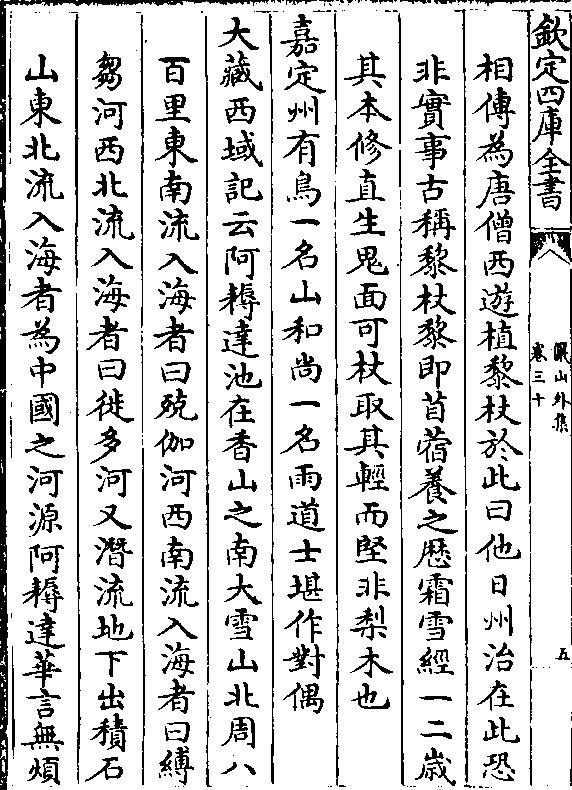 欽定四庫全書
卷三十
五
相傳為唐僧西遊植黎杖於此曰他日州治在此恐
非實事古稱黎杖黎即苜蓿養之歴霜雪經一二歳
其本修直生鬼面可杖取其輕而堅非梨木也
嘉定州有鳥一名山和尚一名雨道士堪作對偶
大藏西域記云阿耨達池在香山之南大雪山北周八
百里東南流入海者曰殑伽河西南流入海者曰縛
芻河西北流入海者曰徙多河又潛流地下出積石
山東北流入海者為中國之河源阿耨達華言無煩